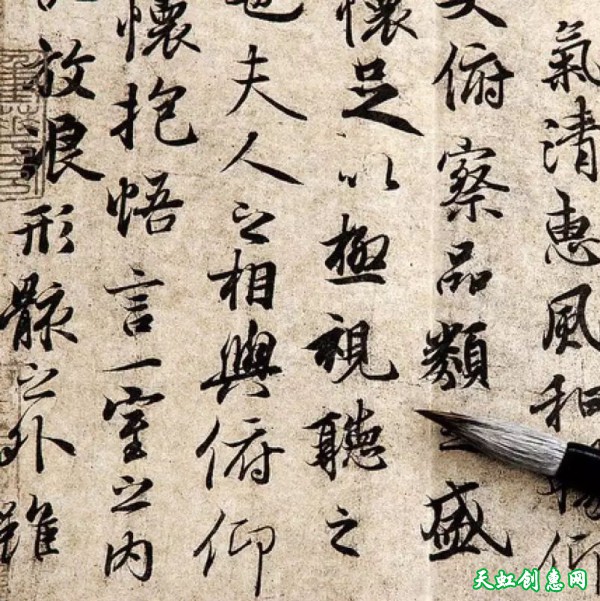 氣清惠風和暢仰
大俯察品類之盛
懷足以極視聽之
也夫人之相與俯仰
懷抱悟言一室之內
放浪形骸之外雖
天虹创惠网